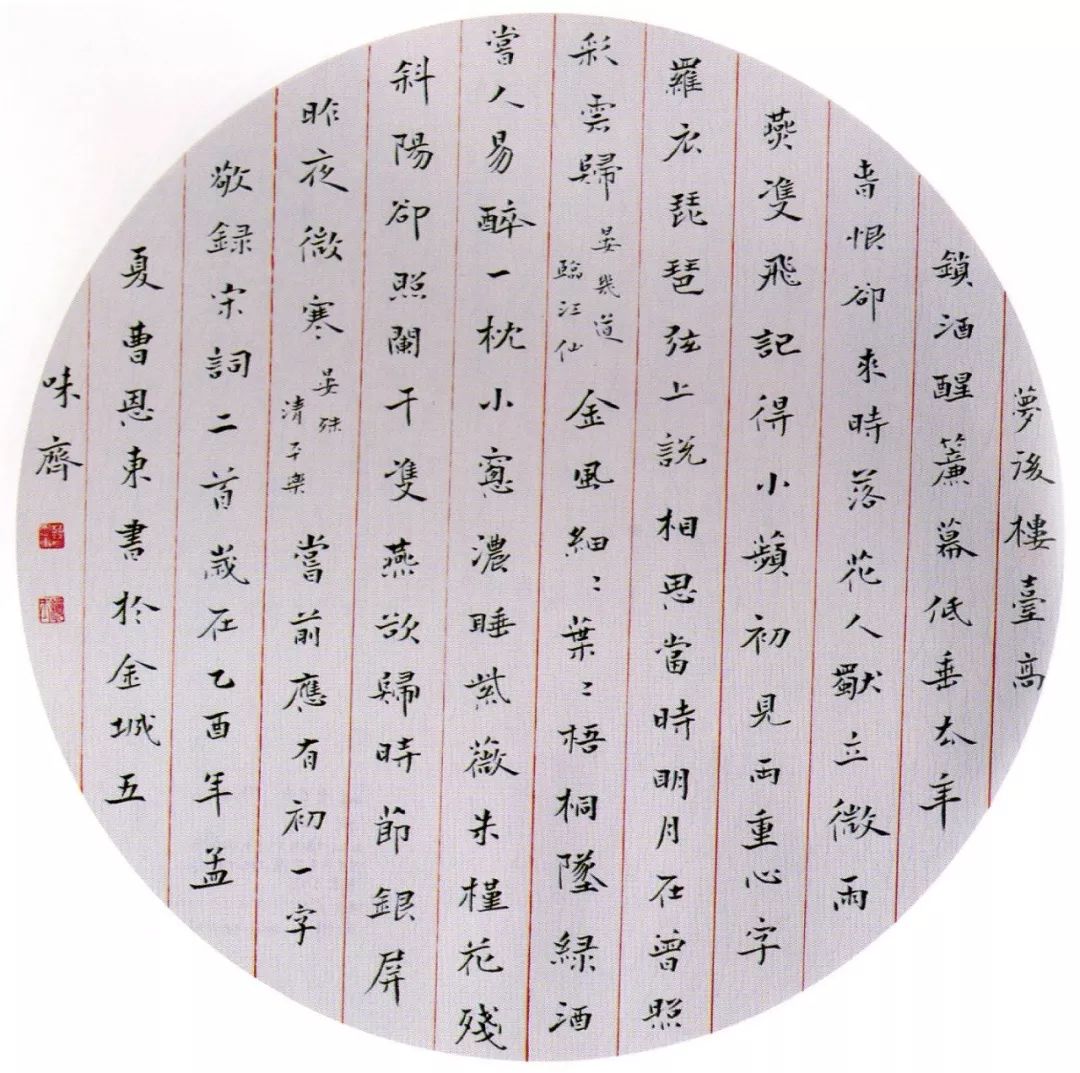 夢後樓臺高
鎖酒醒簾幕低垂去年
春恨卻來時落花人獨立微雨
燕雙飛記得小蘋初見兩重心字
羅衣琵琶弦上說相思當時明月在曾照
彩雲歸 晏幾道 臨江仙 金風細〻葉〻梧桐墜綠酒
嘗人易醉一枕小窻濃睡紫薇朱槿花殘
斜陽卻照闌干雙燕欲歸時節銀屏
昨夜微寒 晏殊 清平樂 嘗前應有初一字
敬錄宋詞二首歲在乙酉年孟
夏曹恩東書於金城五
味齋